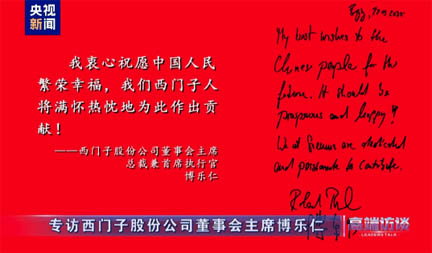 央视
新闻
我衷心祝愿中国人民
繁荣幸福，我们西门子人
将满怀热忱地为此作出贡
献！
——西门子股份公司董事会主席
总裁兼首席执行官
博乐仁
My best wishes to the
Chinese people for the
future. It should be
prosperous and happy!
We at Siemens are dedicated
and passionate to contribute.
专访西门子股份公司董事会主席博乐仁
高端访谈
LEADERS TALK